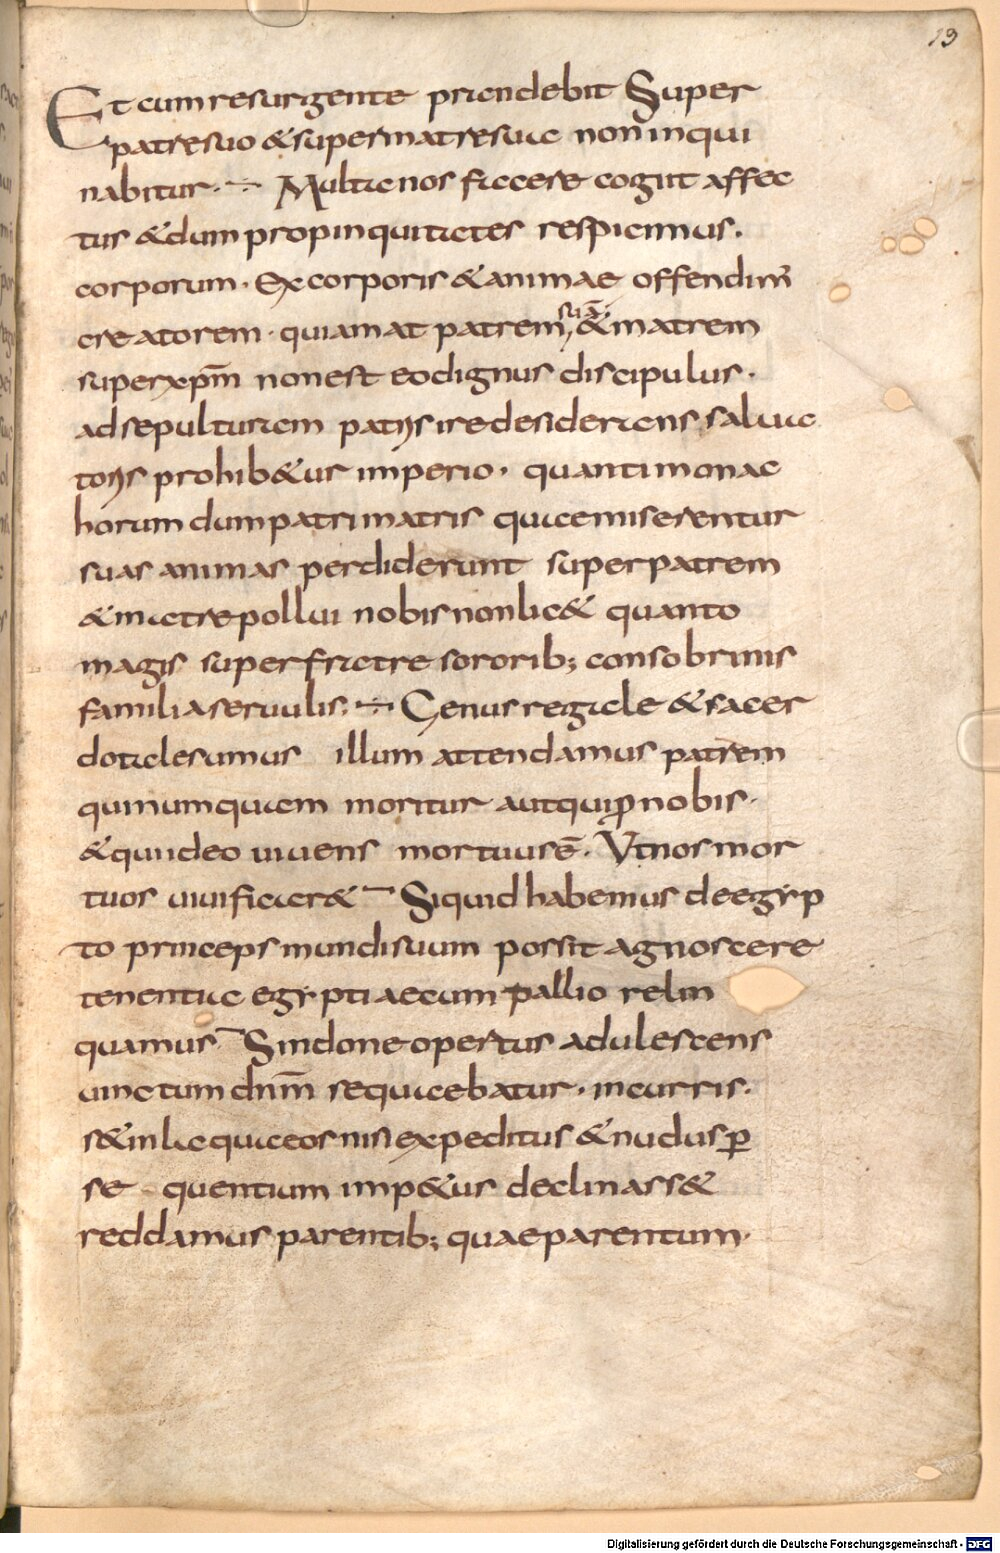 19
Et cum resurgente prandebit Super
patre suo & super matre sua non inqui
nabitur ÷ Multa nos facere cogit affec
tus & dum propinquitates respicimus.
corporum. Ex corporis & animae offendim̄
creatorem. quia mat patrem, suā & matrem
super xp̄m non est eo dignus discipulus.
ad sepulturam patris ire desiderans salua
toris prohib&ur imperio. quanti mona
chorum dum patri matris quae miserentur
suas animas perdiderunt super patrem
& matre pollui nobis non lic& quanto
magis super fratre sororib; consobrinis
familia seruulis ÷ Genus regale & sacer
dotale sumus illum attendamus patrem
qui numquam moritur aut qui ꝓ nobis.
& qui ideo uiuens mortuus ē. Vt nos mor
tuos uiuificar& Si quid habemus de egyp
to princeps mundi suum possit agnoscere
tenenta egyptiae cum pallio relin
quamus Sindone opertus adulescens
uinctum dn̄m sequaebatur. incurris.
s& in laqueos nisi expeditus & nudus ꝑ
se quentium imp&us declinass&
reddamus parentib; quae parentum.
Digitalisierung gefördert durch die Deutsche Forschungsgemeinschaft - DFG